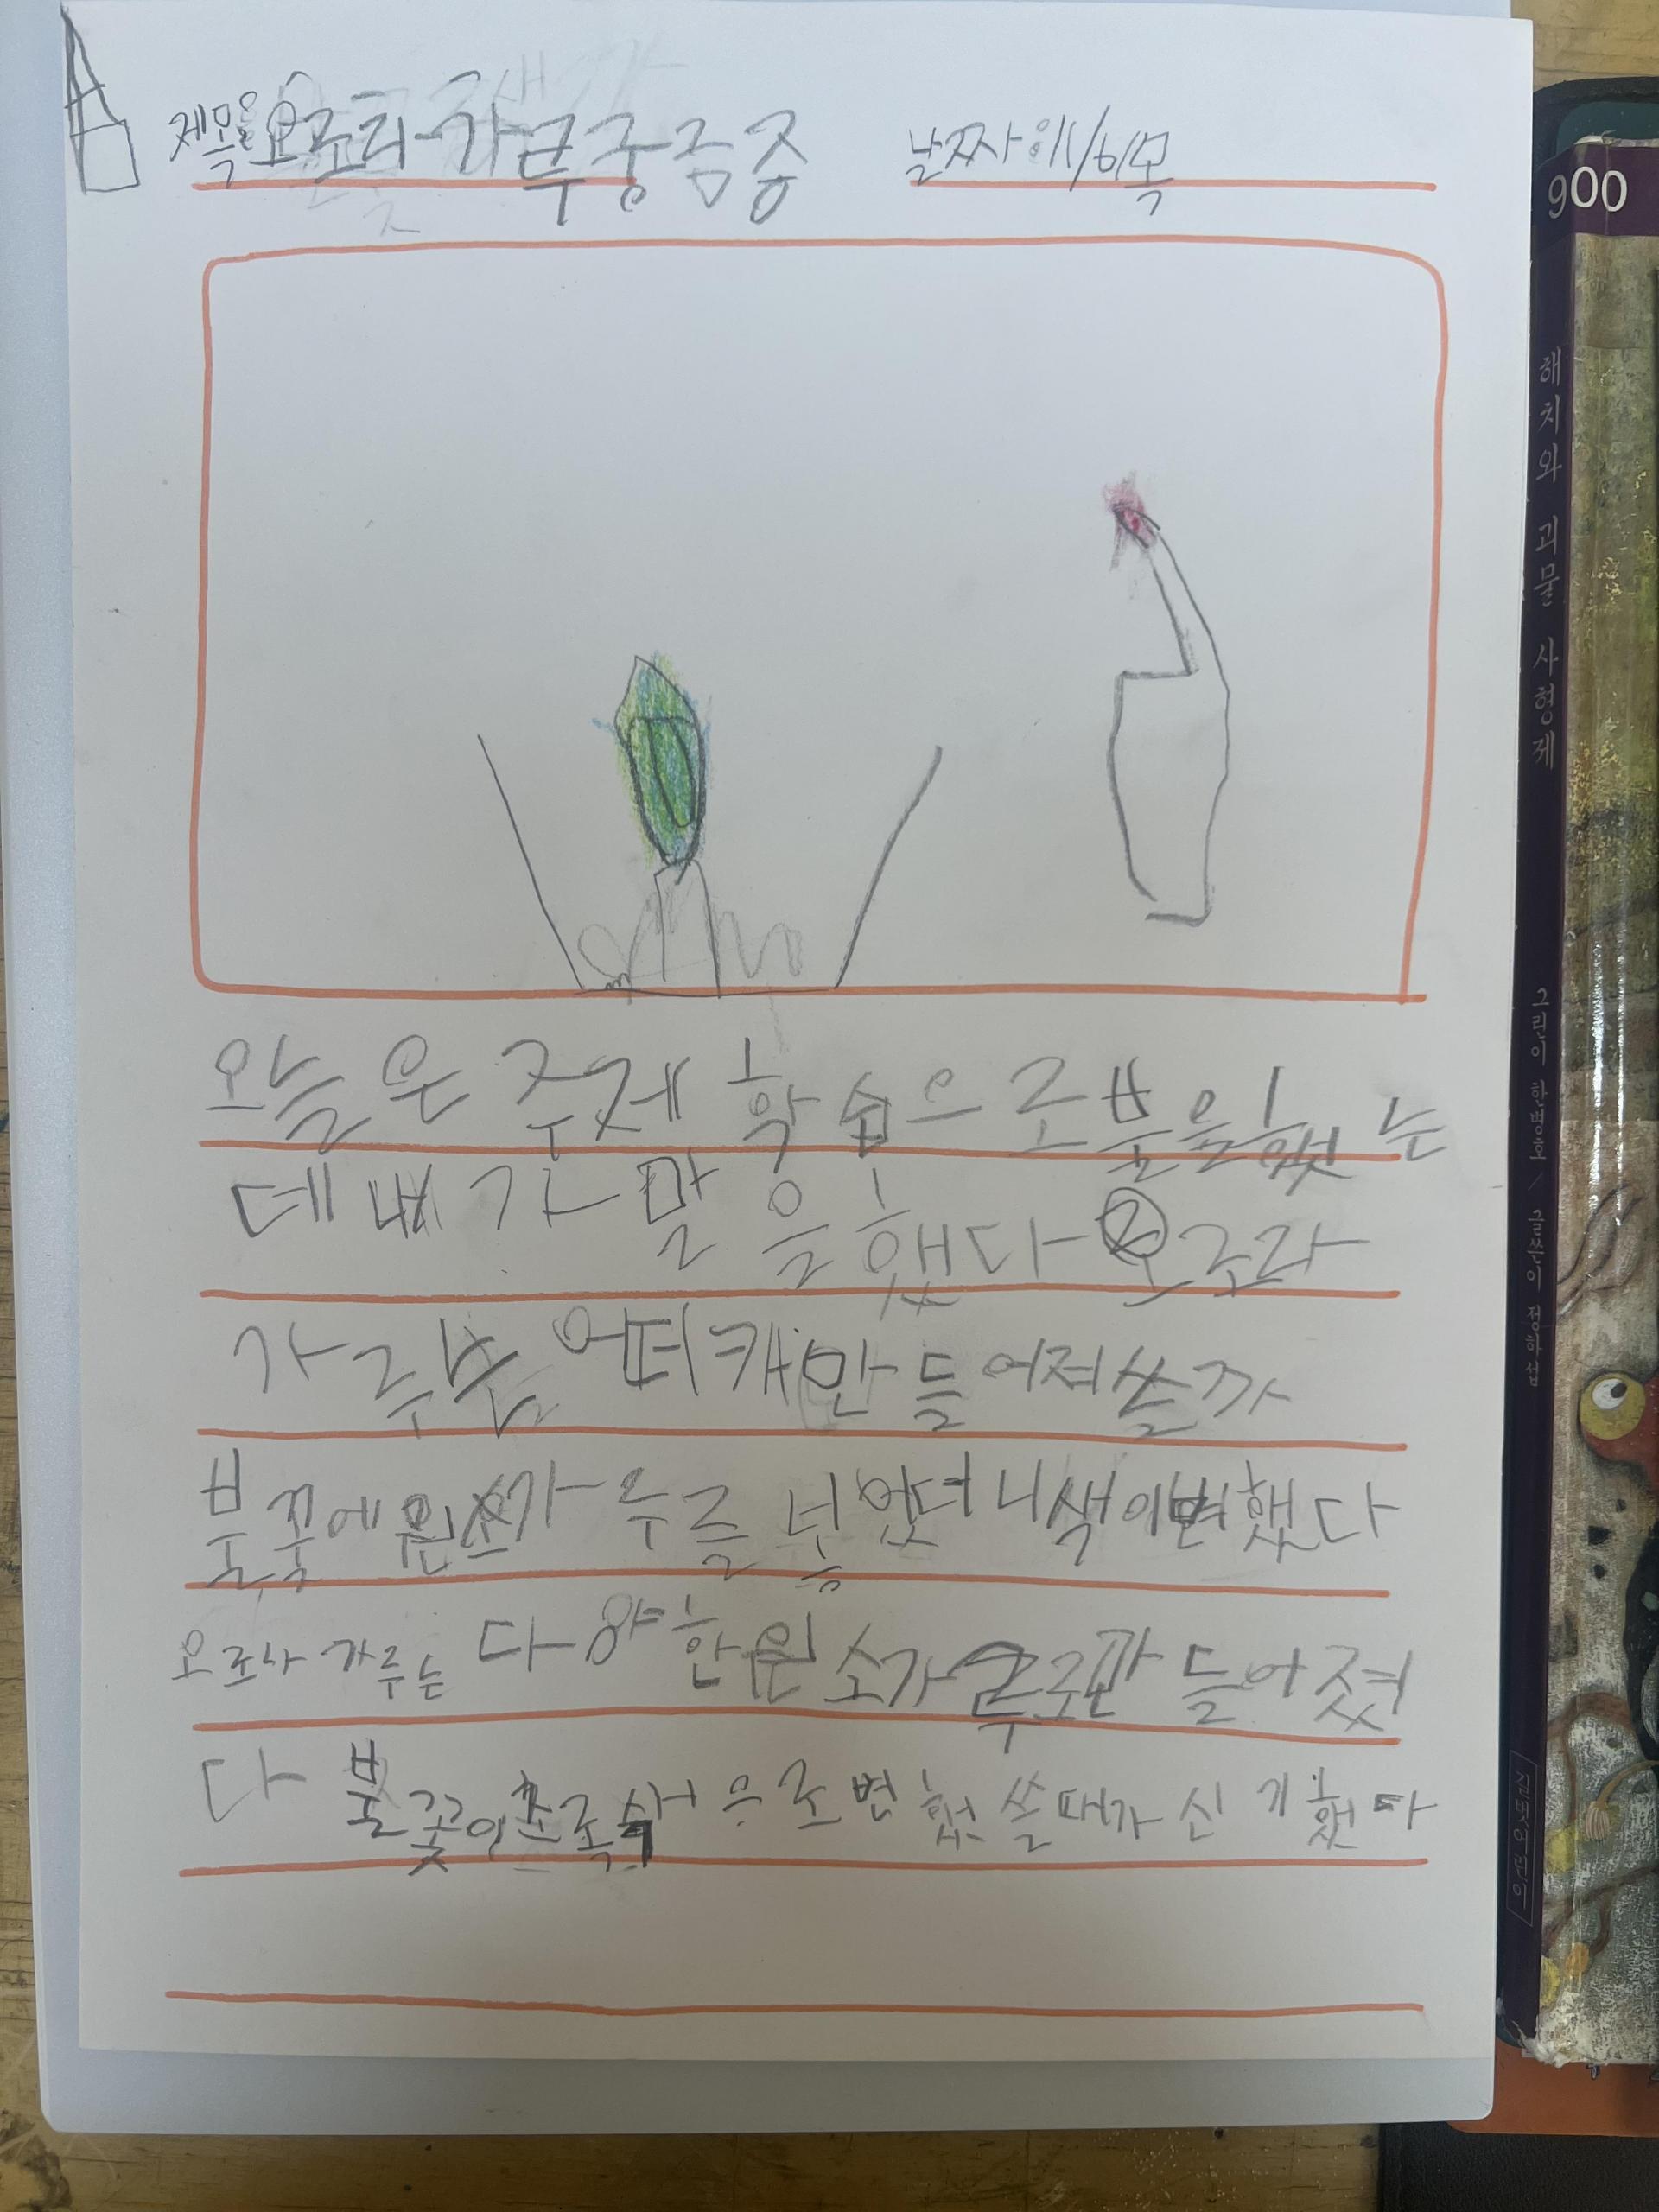 제목:오로라가루궁금증 날짜:11/6/목
오늘은 주제학습으로 불을했는
데 내가 말을했다 오로라
가루는 어떠캐만들어져쓸까
불꽃에원소가루를 넣었더니색이변했다
오로라 가루는 다양한원소가루로만들어졌
다 불꽃이초록색으로변했쓸때가신기했다
900
해치와 괴물 사형제
그린이 한병호 / 글쓴이 정하섭